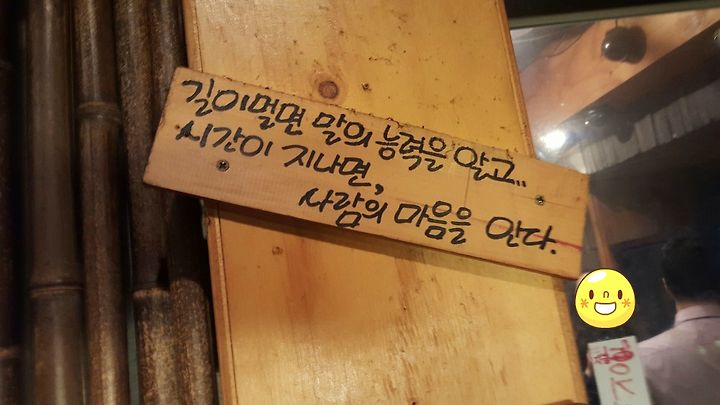 길이멀면 말의 능력을 알고..
시간이 지나면,
사람의 마음을 안다.